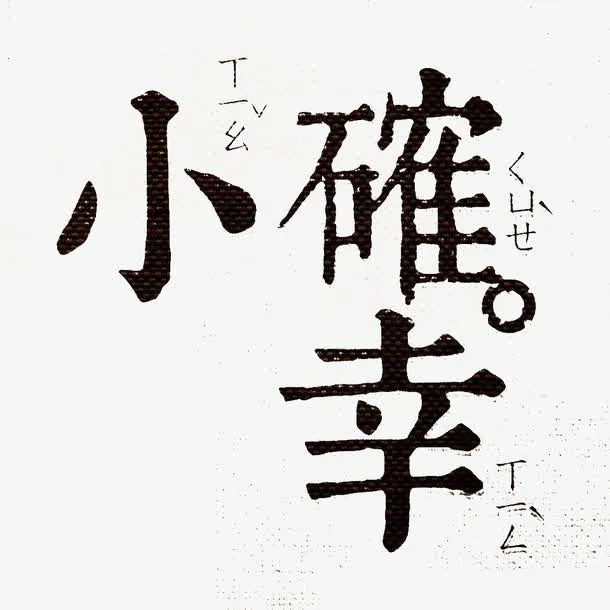 小 ㄒㄧㄠˇ
確 ㄑㄩㄝˋ 。
幸 ㄒㄧㄥˋ